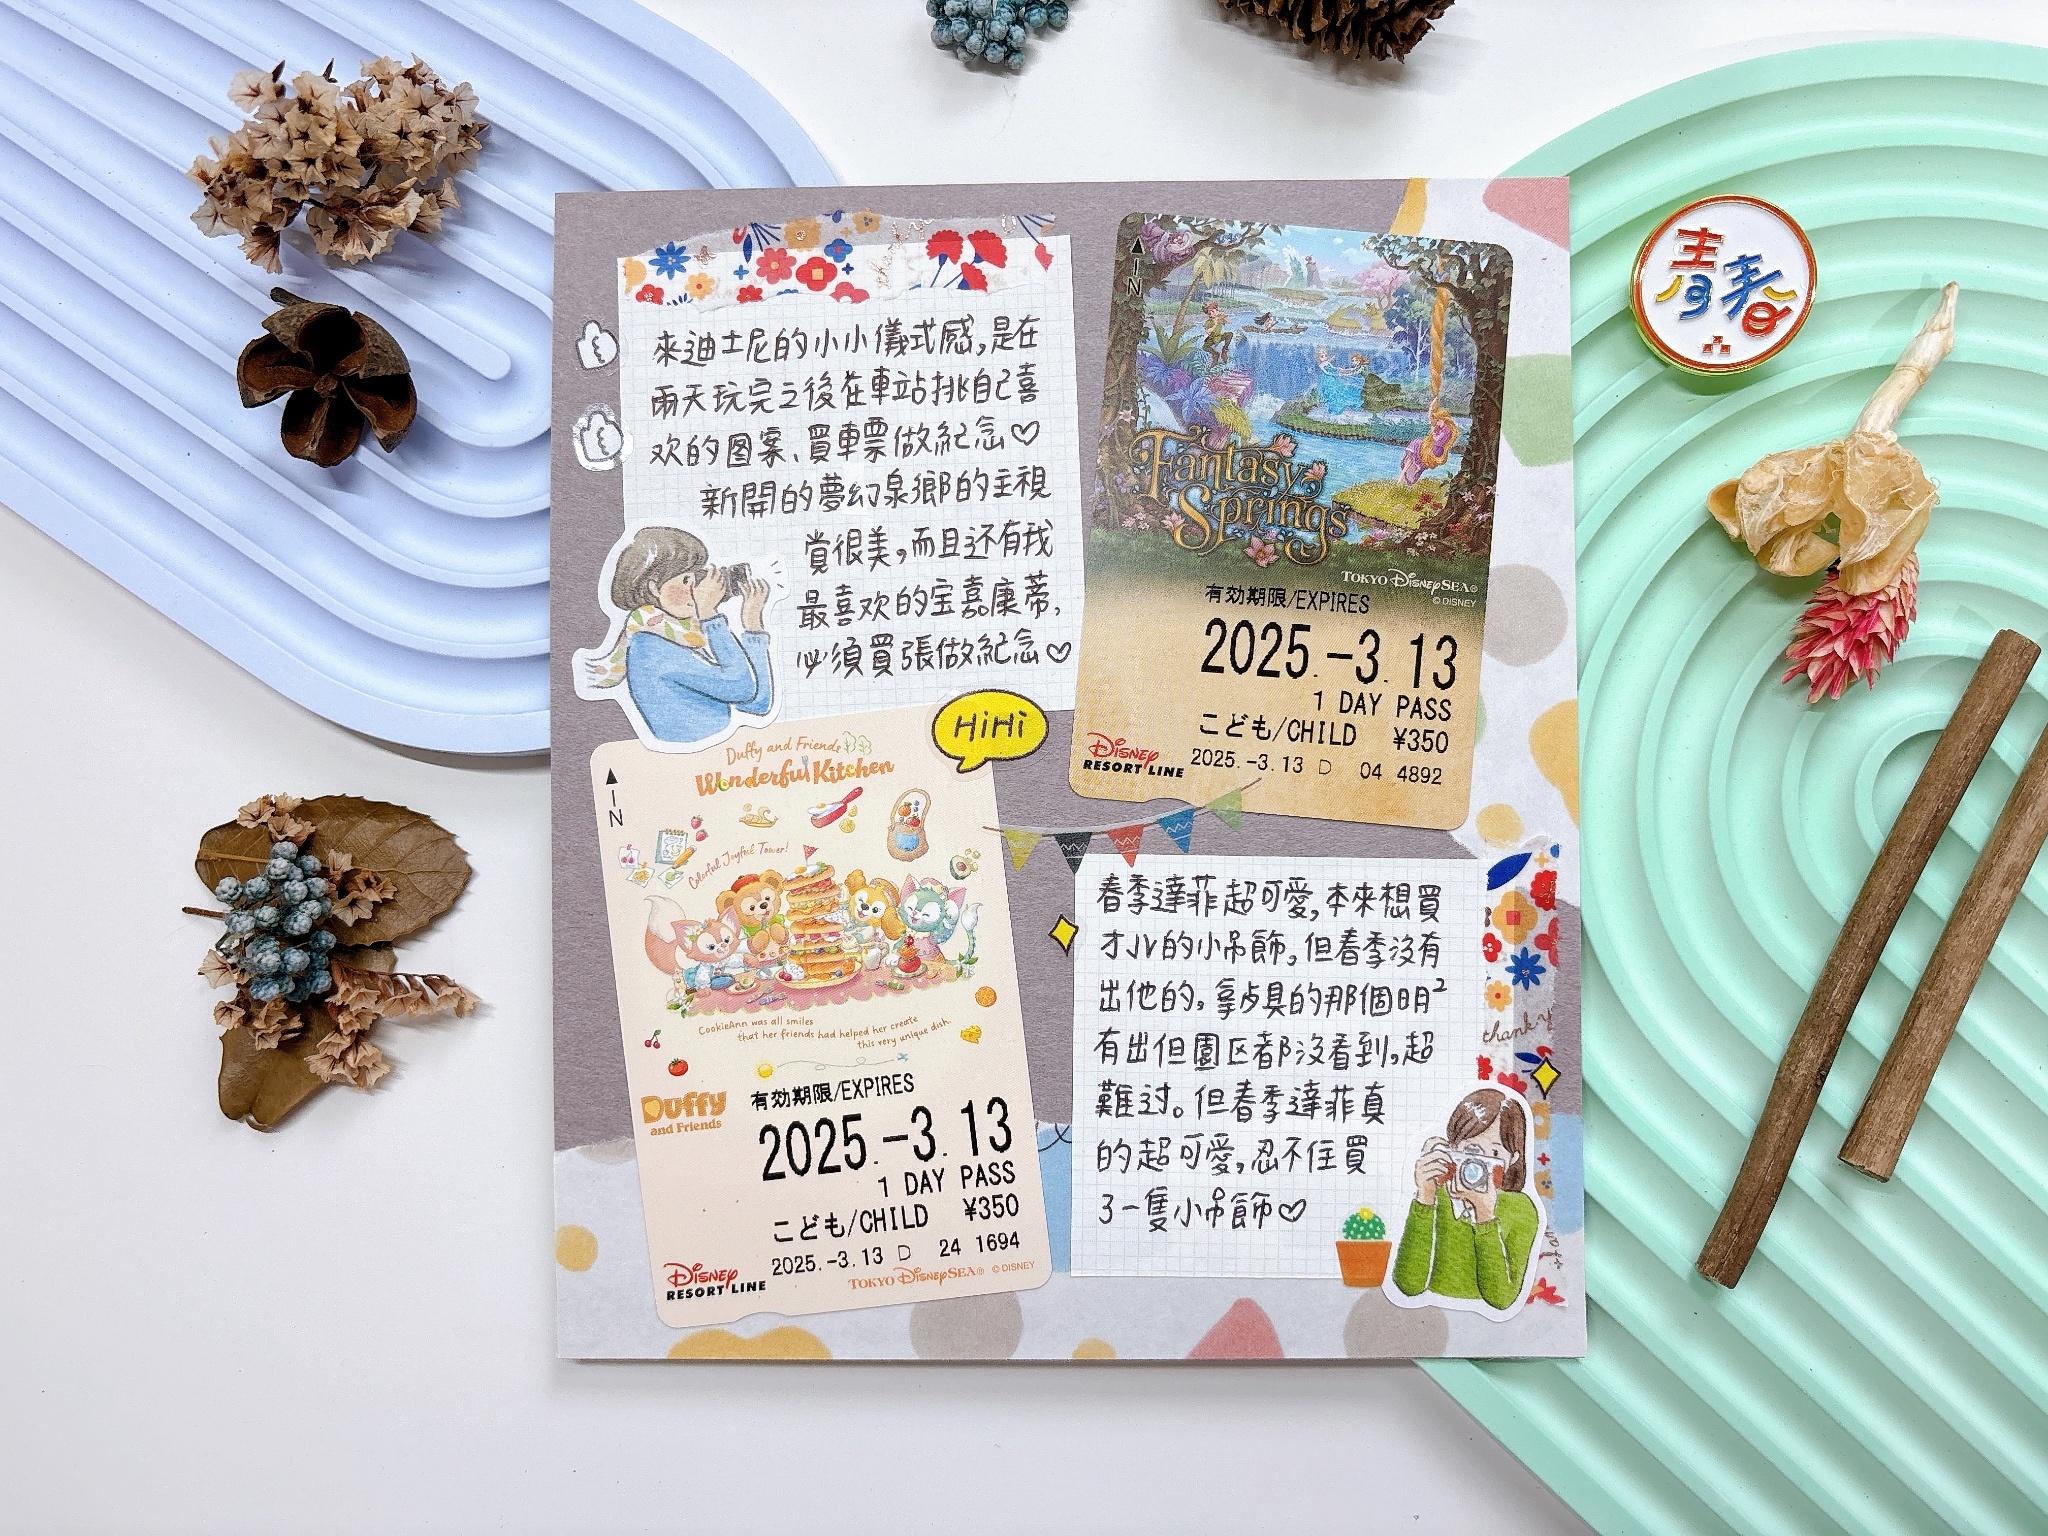 來迪士尼的小小儀式感,是在
兩天玩完之後在車站挑自己喜
欢的图案、買車票做紀念♡
新開的夢幻泉鄉的主視
賞很美,而且还有我
最喜欢的宝嘉康蒂,
必須買張做紀念♡
IN
Fantasy
Springs
TOKYO DISNEYSEA®
© DISNEY
有効期限/EXPIRES
2025.-3.13
1 DAY PASS
こども/CHILD ¥350
2025.-3.13 D 04 4892
DISNEY
RESORT LINE
HiHi
IN
Duffy and Friends
Wonderful Kitchen
Colorful Joyful Tower!
CookieAnn was all smiles
that her friends had helped her create
this very unique dish.
Duffy
and Friends
有効期限/EXPIRES
2025.-3.13
1 DAY PASS
こども/CHILD ¥350
2025.-3.13 D 24 1694
DISNEY
RESORT LINE
TOKYO DISNEYSEA® © DISNEY
春季達菲超可愛,本來想買
才儿的小吊飾,但春季沒有
出他的,拿炉具的那個明²
有出但園区都沒看到,超
難过。但春季達菲真
的超可愛,忍不住買
了一隻小吊飾♡
thank y
青春